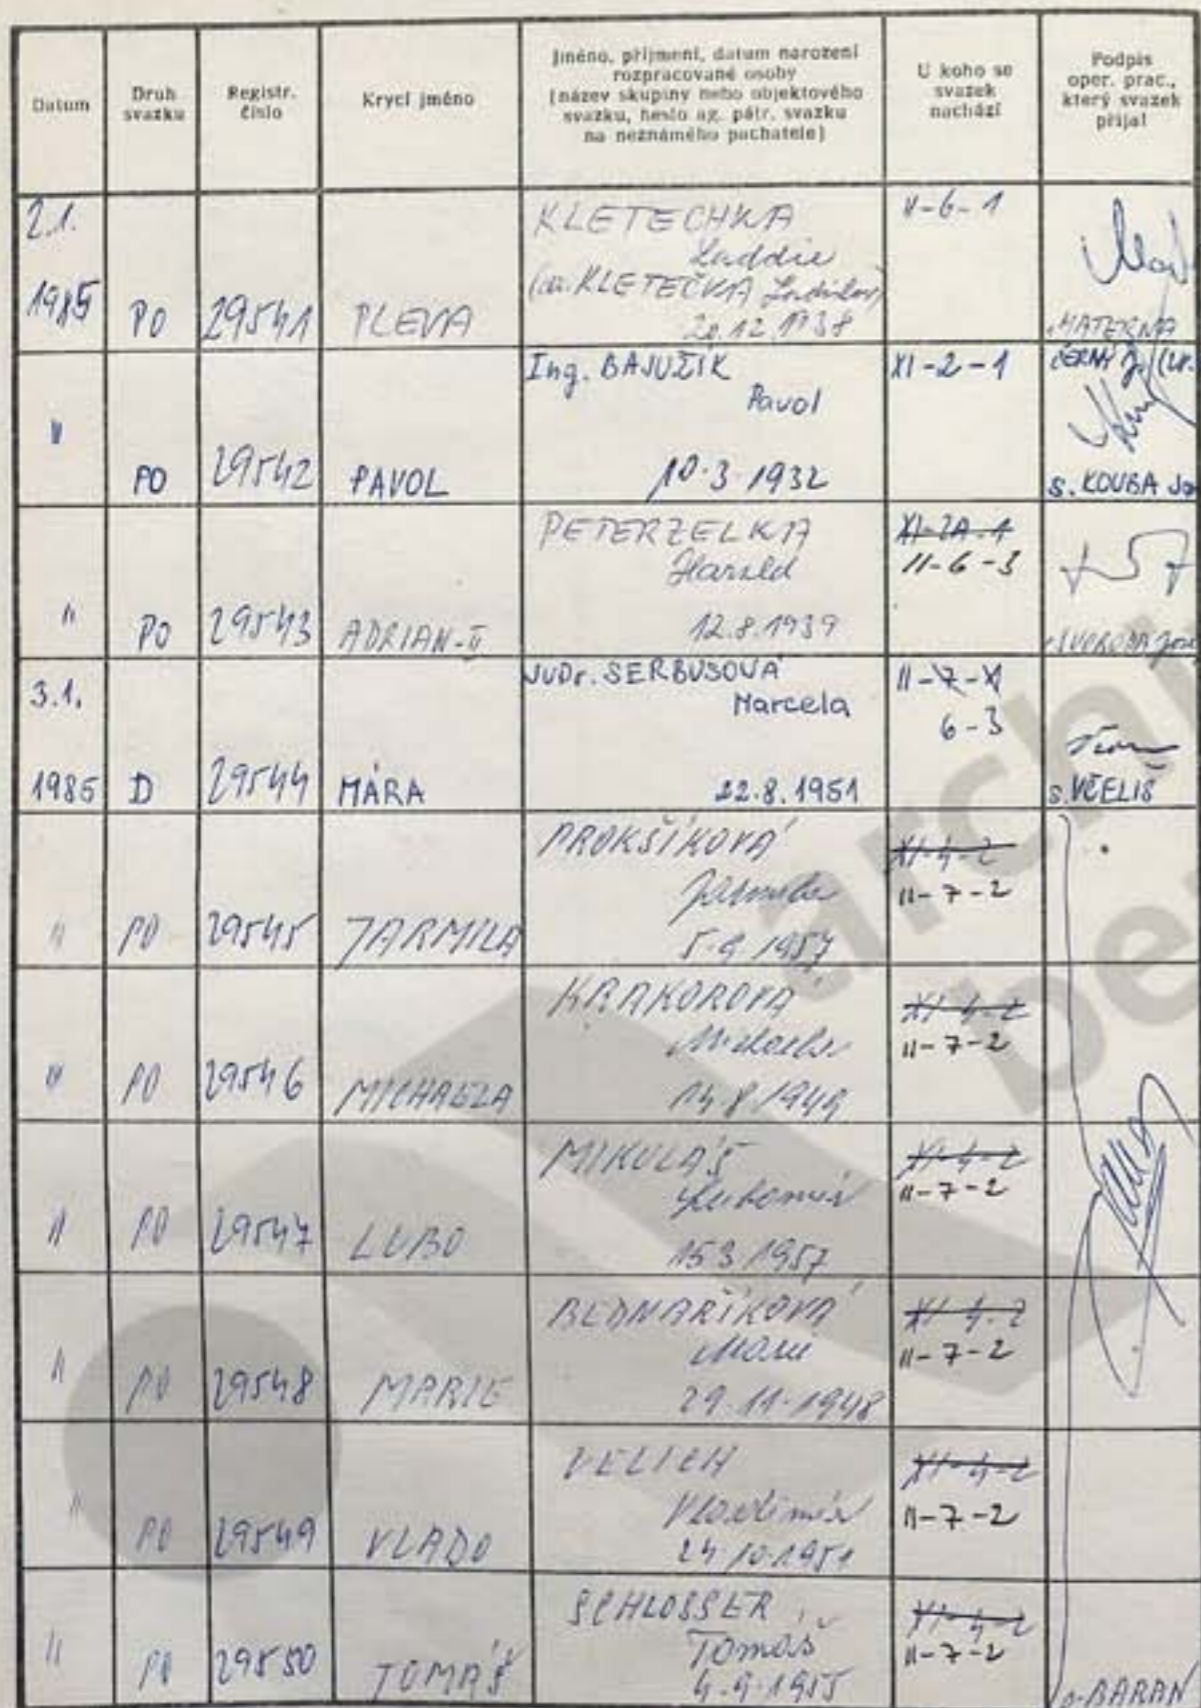 Datum
Druh
svazku
Registr.
číslo
Krycí jméno
Jméno, příjmení, datum narození
rozpracované osoby
(název skupiny nebo objektového
svazku, heslo ag. pátr. svazku
na neznámého pachatele)
U koho se
svazek
nachází
Podpis
oper. prac.,
který svazek
přijal
2.1.
1985
PO
29541
PLEVA
KLETECHKA
Laddie
KLETEČKA Ladislav)
20.12.1938
II-6-1
MATERNA
"
PO
29542
PAVOL
Ing. BAJUŽÍK
Pavol
10.3.1932
XI-2-1
ČERNÝ J.
S. KOUBA
"
PO
29543
ADRIAN-II
PETERZELKA
Harold
12.8.1939
XI-2A-1
II-6-3
SVOBODA
3.1.
1985
D
29544
MÁRA
JUDr. SERBUSOVÁ
Marcela
22.8.1951
II-7-X
6-3
s. VČELIŠ
"
PO
29545
JARMILA
PROKŠÍKOVÁ
Jarmila
5.9.1957
XI-4-2
II-7-2
"
PO
29546
MICHAELA
KRAKOROVÁ
Michaela
14.8.1949
XI-4-2
II-7-2
"
PO
29547
LUBO
MIKULÁŠ
Lubomír
15.3.1957
XI-4-2
II-7-2
"
PO
29548
MARIE
BEDNAŘÍKOVÁ
Marie
29.11.1948
XI-4-2
II-7-2
"
PO
29549
VLADO
VELICH
Vladimír
24.10.1951
XI-4-2
II-7-2
"
PO
29550
TOMÁŠ
SCHLOSSER
Tomáš
4.9.1955
XI-4-2
II-7-2
s. BARAN